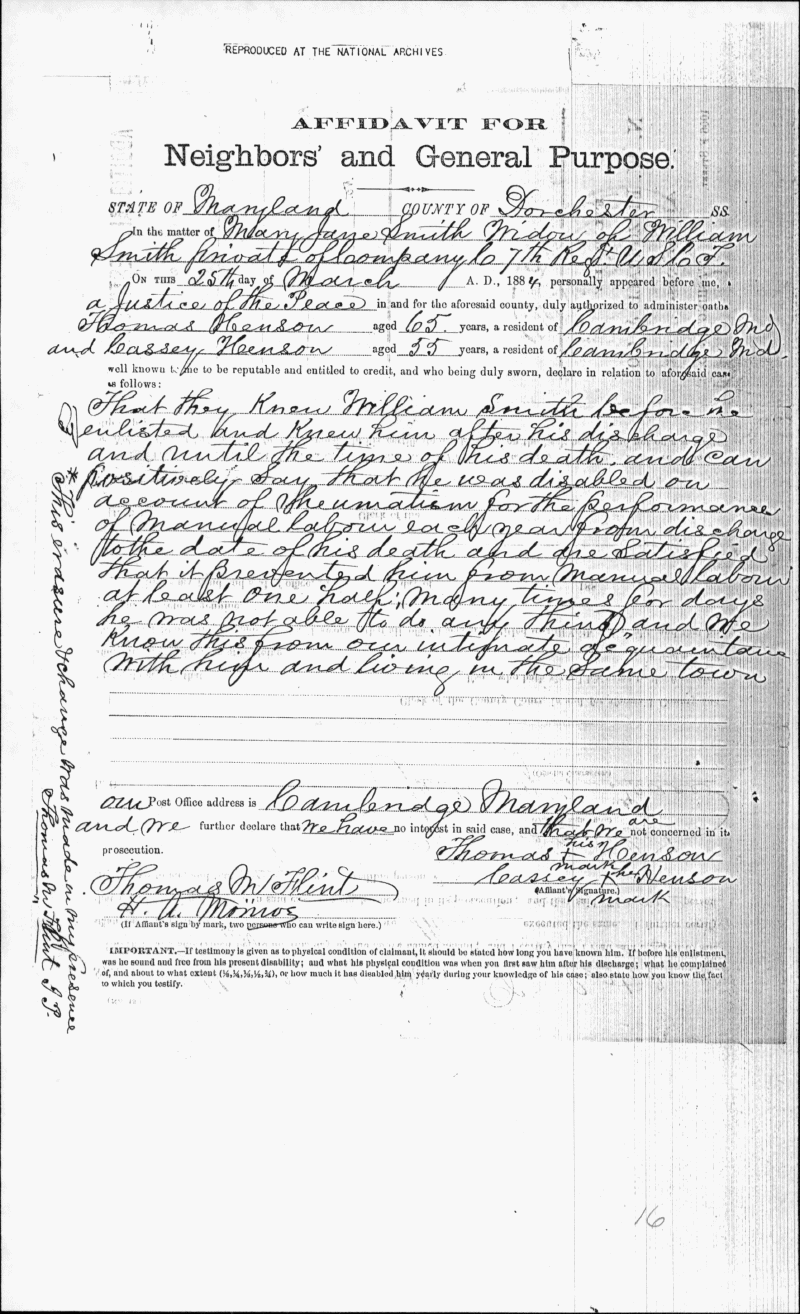 REPRODUCED AT THE NATIONAL ARCHIVES
AFFIDAVIT FOR
Neighbors' and General Purpose.
STATE OF Maryland COUNTY OF Dorchester SS
In the matter of Mary Jane Smith Widow of William
Smith private of Company C 7th Regt. U.S.C.T.
ON THIS 25th day of March A. D., 1884, personally appeared before me,
a Justice of the Peace in and for the aforesaid county, duly authorized to administer oaths
Thomas Henson aged 65. years, a resident of Cambridge Md
and Cassey Henson aged 55 years, a resident of Cambridge Md.
well known to me to be reputable and entitled to credit, and who being duly sworn, declare in relation to aforesaid case
as follows:
That they knew William Smith before he
enlisted and knew him after his discharge
and until the time of his death, and can
positively say that he was disabled on
account of Rheumatism for the performance
of Manual labour each year from discharge
to the date of his death and are satisfied
that it prevented him from Manual labour
at least one half; Many times for days
he was not able to do any thing and we
know this from our intimate acquaintance
with him and living in the same town
* This erasure & change was made in my presence
Thomas W Flint J P.
our Post Office address is Cambridge Maryland
and We further declare that We have no interest in said case, and that we are not concerned in its
prosecution.
Thomas his + mark Henson
Cassey + her mark Henson
(Affiant's Signature.)
Thomas W Flint
H. A.
(If Affiant's sign by mark, two persons who can write sign here.)
IMPORTANT.—If testimony is given as to physical condition of claimant, it should be stated how long you have known him. If before his enlistment,
was he sound and free from his present disability; and what his physical condition was when you first saw him after his discharge; what he complained
of, and about to what extent (⅛,¼,⅓,½,¾), or how much it has disabled him yearly during your knowledge of his case; also state how you know the fact
to which you testify.
16